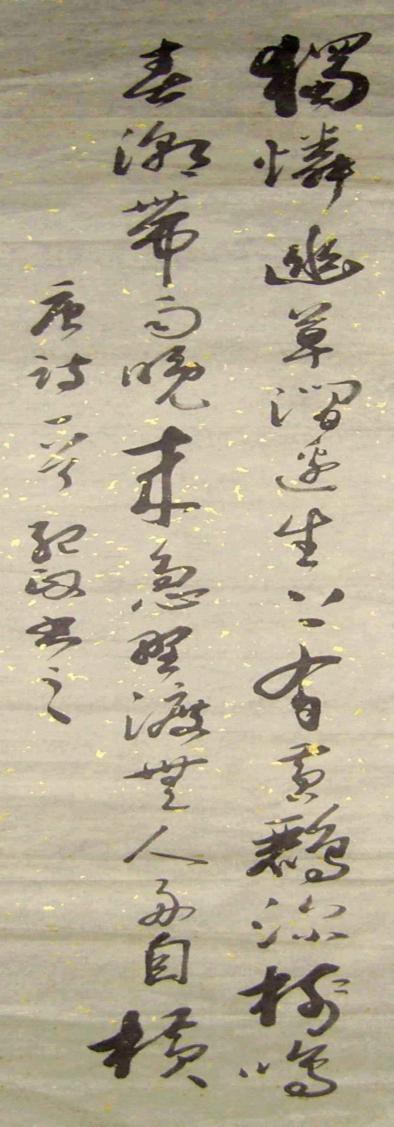 獨憐幽草澗邊生上有黃鸝深樹鳴
春潮帶雨晚來急野渡無人舟自橫
唐詩一首 書之